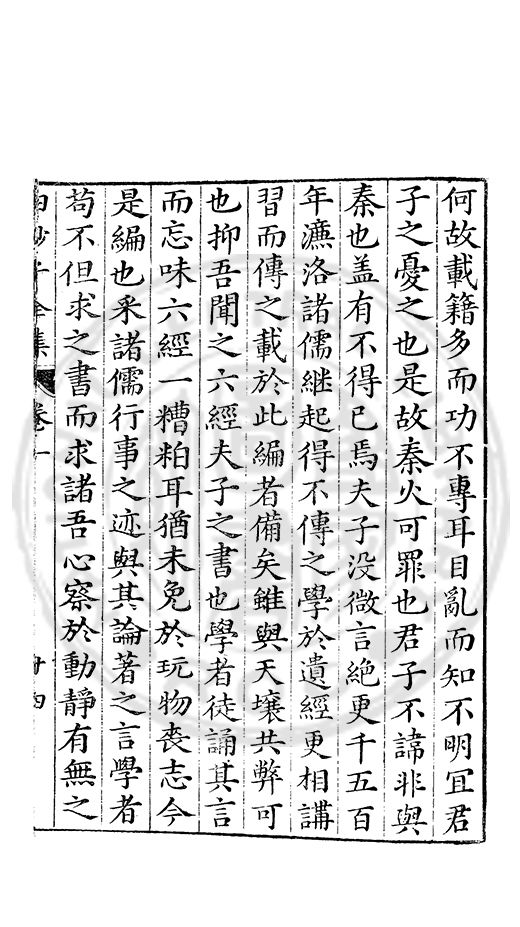 何故載籍多而功不專耳目亂而知不明冝君
子之憂之也是故秦火可罪也君子不諱非與
秦也盖有不得已焉夫子没微言絶更千五百
年濂洛諸儒継起得不傳之學於遺經更相講
習而傳之載於此編者備矣雖與天壤共弊可
也抑吾聞之六經夫子之書也學者徒誦其言
而忘味六經一糟粕耳猶未免於玩物喪志今
是編也采諸儒行事之迹與其論著之言學者
茍不但求之書而求諸吾心察於動靜有無之
白沙子全集 卷一